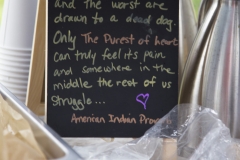 and the worst are
drawn to a dead dog.
Only The Purest of heart
can truly feel its pain
and somewhere in the
middle the rest of us
struggle...
American Indian